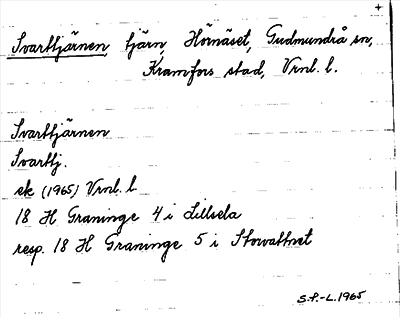 Svarttjärnen, tjärn, Hömäset, Gudmundrå sn,
Kramfors stad, Vrnl. l.
Svarttjärnen
Svarttj.
ek (1965) Vrnl. l
18 H Graninge 4 i Lillsela
resp. 18 H Graninge 5 i Storvattnet
S.P.-L. 1965